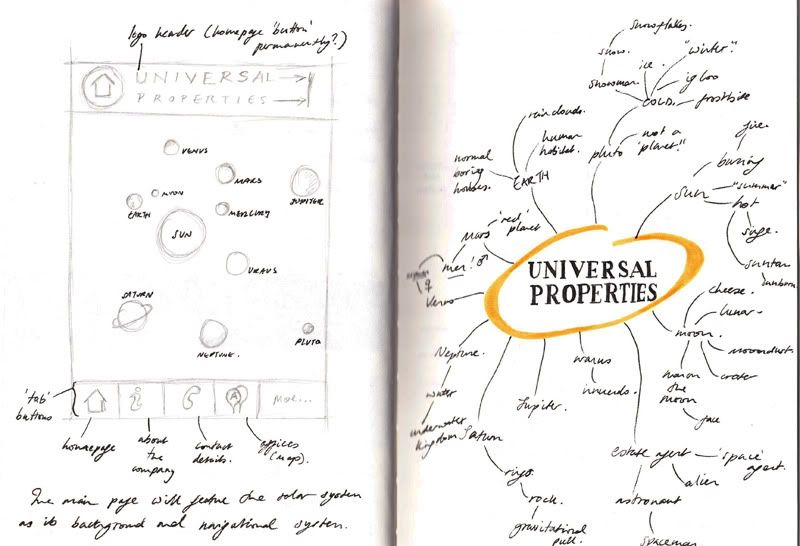 logo header (homepage 'button'
permanently?)
UNIVERSAL
PROPERTIES
VENUS
MARS
JUPITER
MOON
EARTH
MERCURY
SUN
URAUS
SATURN
NEPTUNE.
PLUTO
'tab'
buttons
i
A
MORE...
homepage
about
the
company
contact
details.
offices
(map).
The main page will feature the solar system
as its background and navigational system.
snowflakes.
snow.
ice.
"winter".
snowman.
igloo
COLD.
frostbite
rainclouds.
human
habitat.
normal
boring
houses.
EARTH
pluto
not a
'planet'.
fire.
burning
sun
"summer"
hot
singe.
suntan
sunburn
'red'
planet
Mars
men! ♂
♀
Venus
UNIVERSAL
PROPERTIES
cheese.
lunar
moon.
moondust.
crater
man on
the
moon
face
Neptune.
water
underwater
kingdom
Jupiter.
uranus
innuendo.
Saturn
rings.
rock.
gravitational
pull.
estate agent
'space'
agent.
alien
astronaut
spaceman